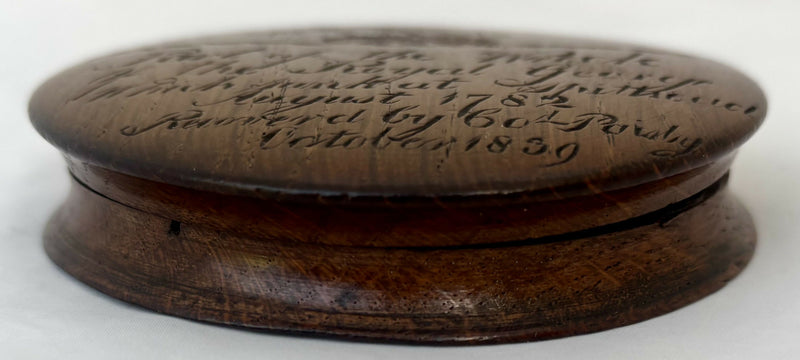 the Royal George
Which sunk at Spithead
August 1782
Remov'd by Col Pasley
October 1839